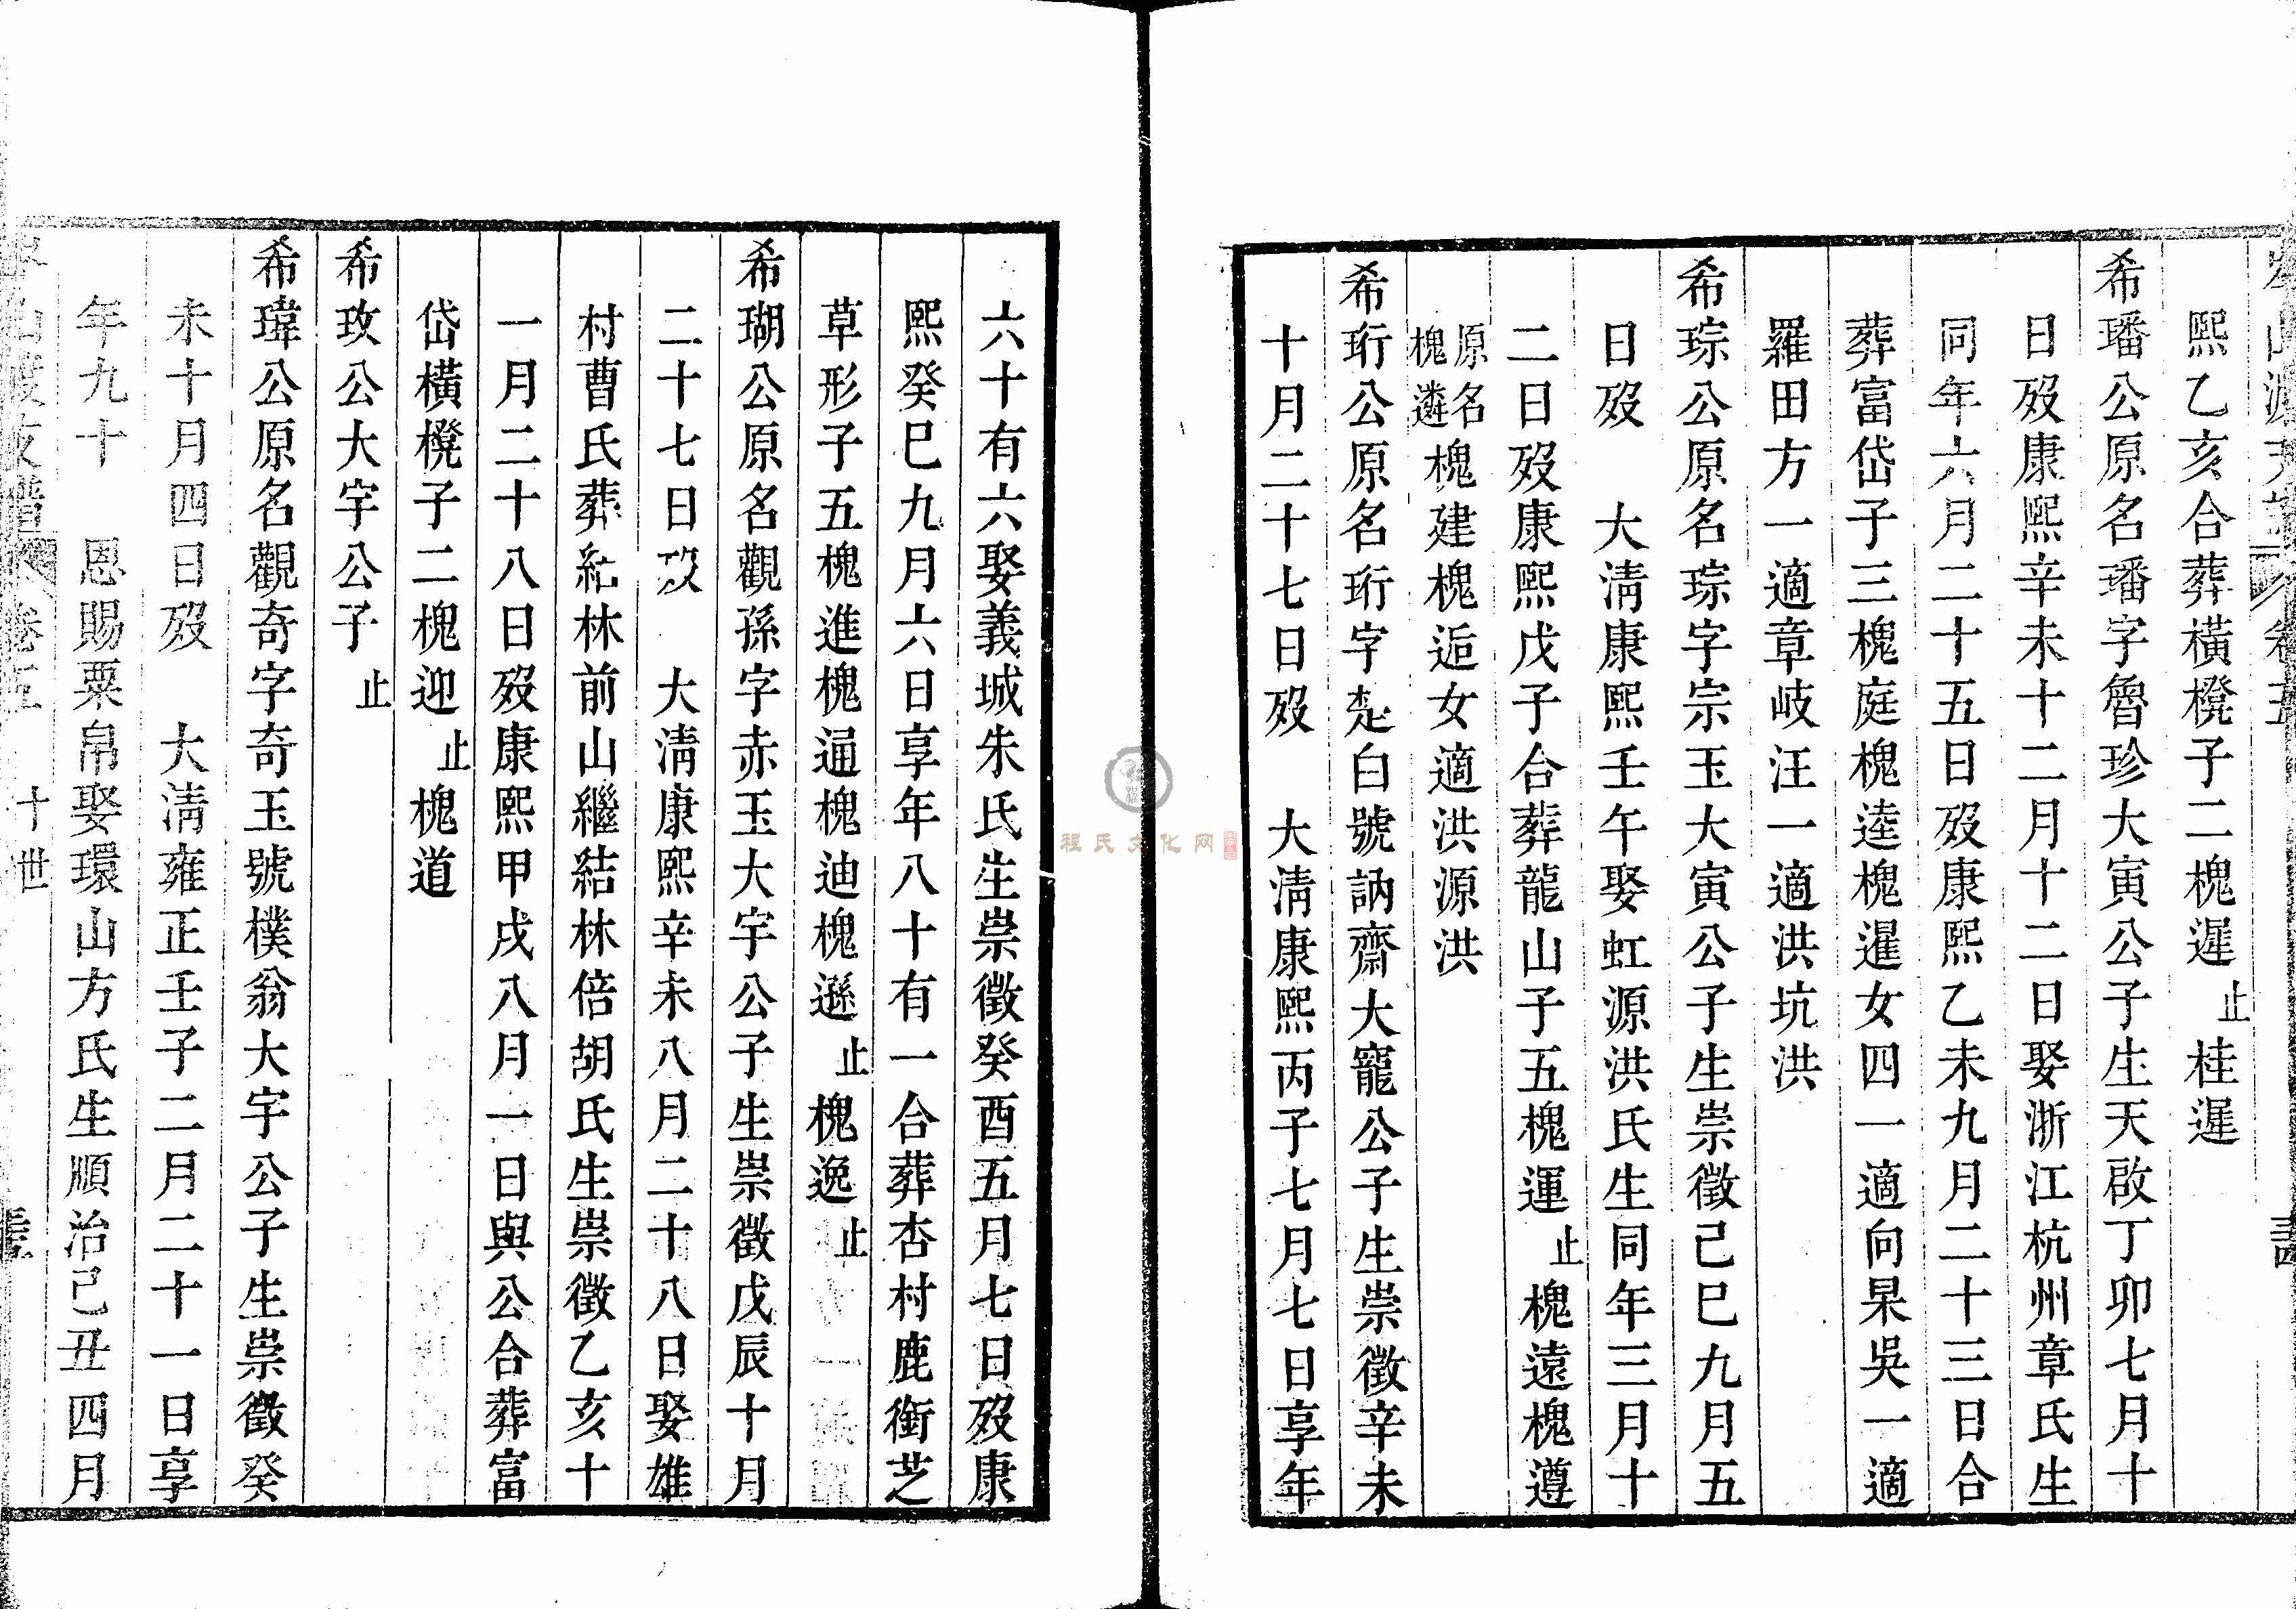 熙乙亥合葬橫櫈子二槐遲止桂遲
希璠公原名璠字魯珍大寅公子生天啟丁卯七月十
日歿康熙辛未十二月十二日娶浙江杭州章氏生
同年六月二十五日歿康熙乙未九月二十三日合
葬富岱子三槐庭槐逵槐暹女四一適向杲吳一適
羅田方一適章岐汪一適洪坑洪
希琮公原名琮字宗玉大寅公子生崇徵己巳九月五
日歿　大清康熙壬午娶虹源洪氏生同年三月十
二日歿康熙戊子合葬龍山子五槐運止槐遠槐遵
原名槐遴槐建槐逅女適洪源洪
希珩公原名珩字楚白號訥齋大寵公子生崇徵辛未
十月二十七日歿　大清康熙丙子七月七日享年
六十有六娶義城朱氏生崇徵癸酉五月七日歿康
熙癸巳九月六日享年八十有一合葬杏村鹿銜芝
草形子五槐進槐通槐迪槐遜止槐逸止
希瑚公原名觀孫字赤玉大宇公子生崇徵戊辰十月
二十七日歿　大清康熙辛未八月二十八日娶雄
村曹氏葬結林前山繼結林倍胡氏生崇徵乙亥十
一月二十八日歿康熙甲戌八月一日與公合葬富
岱橫櫈子二槐迎止槐道
希玫公大宇公子止
希瑋公原名觀奇字奇玉號樸翁大宇公子生崇徵癸
未十月四日歿　大清雍正壬子二月二十一日享
年九十　恩賜粟帛娶環山方氏生順治己丑四月
卷五　十世
程氏文化网